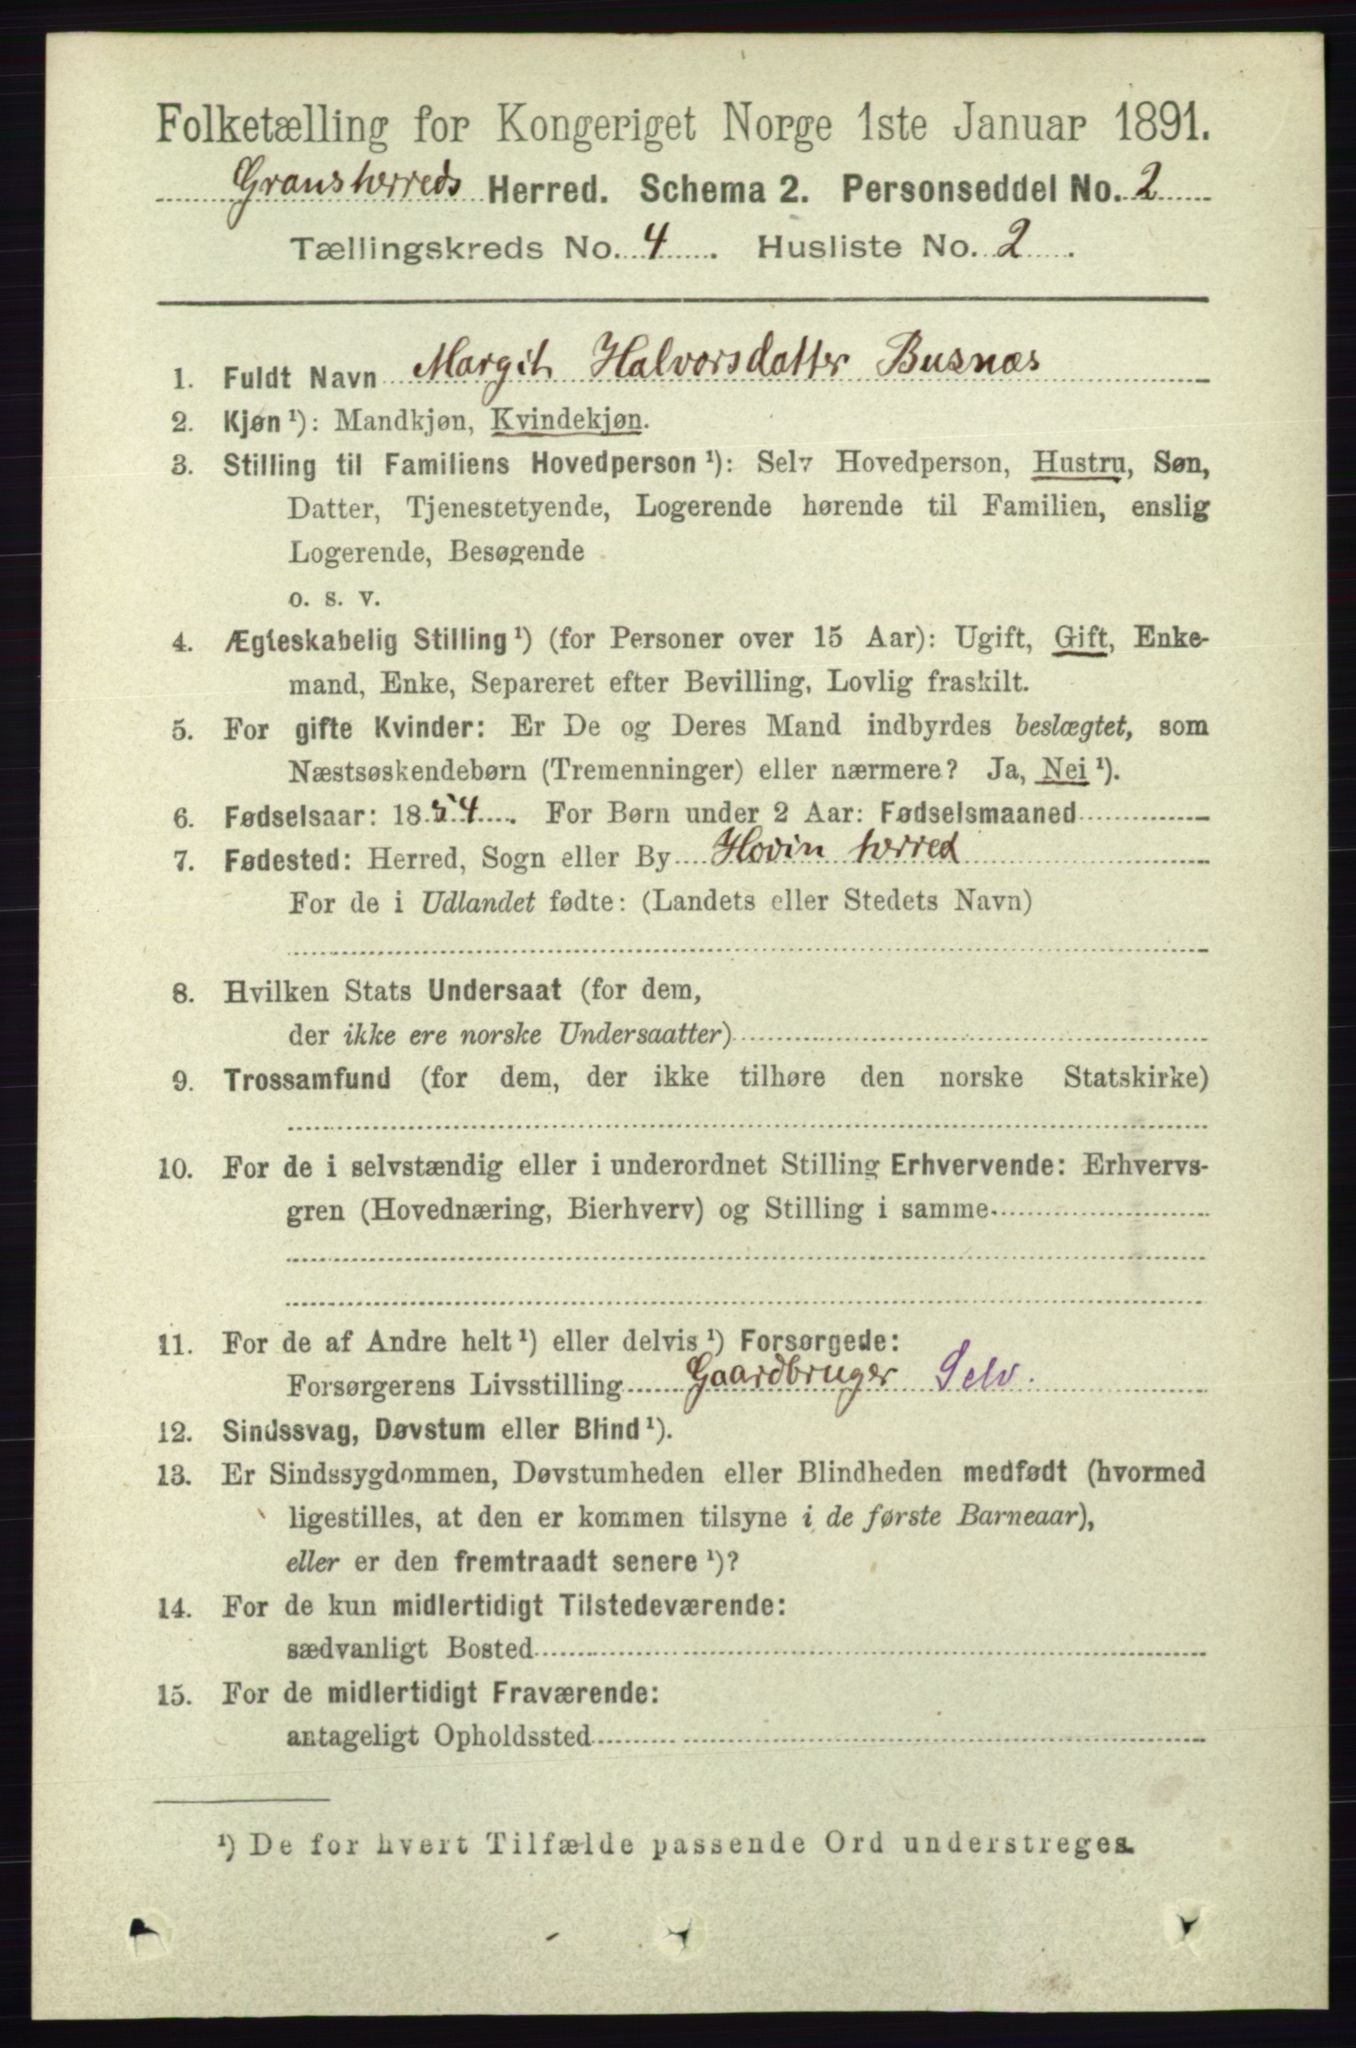 Folketælling for Kongeriget Norge 1ste Januar 1891.
Gransherreds Herred. Schema 2. Personseddel No. 2
Tællingskreds No. 4. Husliste No. 2.
1. Fuldt Navn Margit Halvorsdatter Busnæs
2. Kjøn ¹): Mandkjøn, Kvindekjøn.
3. Stilling til Familiens Hovedperson ¹): Selv Hovedperson, Hustru, Søn,
Datter, Tjenestetyende, Logerende hørende til Familien, enslig
Logerende, Besøgende
o. s. v.
4. Ægteskabelig Stilling ¹) (for Personer over 15 Aar): Ugift, Gift, Enke-
mand, Enke, Separeret efter Bevilling, Lovlig fraskilt.
5. For gifte Kvinder: Er De og Deres Mand indbyrdes beslægtet, som
Næstsøskendebørn (Tremenninger) eller nærmere? Ja, Nei ¹).
6. Fødselsaar: 1854. For Børn under 2 Aar: Fødselsmaaned
7. Fødested: Herred, Sogn eller By Hovin herred
For de i Udlandet fødte: (Landets eller Stedets Navn)
8. Hvilken Stats Undersaat (for dem,
der ikke ere norske Undersaatter)
9. Trossamfund (for dem, der ikke tilhøre den norske Statskirke)
10. For de i selvstændig eller i underordnet Stilling Erhvervende: Erhvervs-
gren (Hovednæring, Bierhverv) og Stilling i samme
11. For de af Andre helt ¹) eller delvis ¹) Forsørgede:
Forsørgerens Livsstilling Gaardbruger Selv.
12. Sindssvag, Døvstum eller Blind ¹).
13. Er Sindssygdommen, Døvstumheden eller Blindheden medfødt (hvormed
ligestilles, at den er kommen tilsyne i de første Barneaar),
eller er den fremtraadt senere ¹)?
14. For de kun midlertidigt Tilstedeværende:
sædvanligt Bosted
15. For de midlertidigt Fraværende:
antageligt Opholdssted
¹) De for hvert Tilfælde passende Ord understreges.